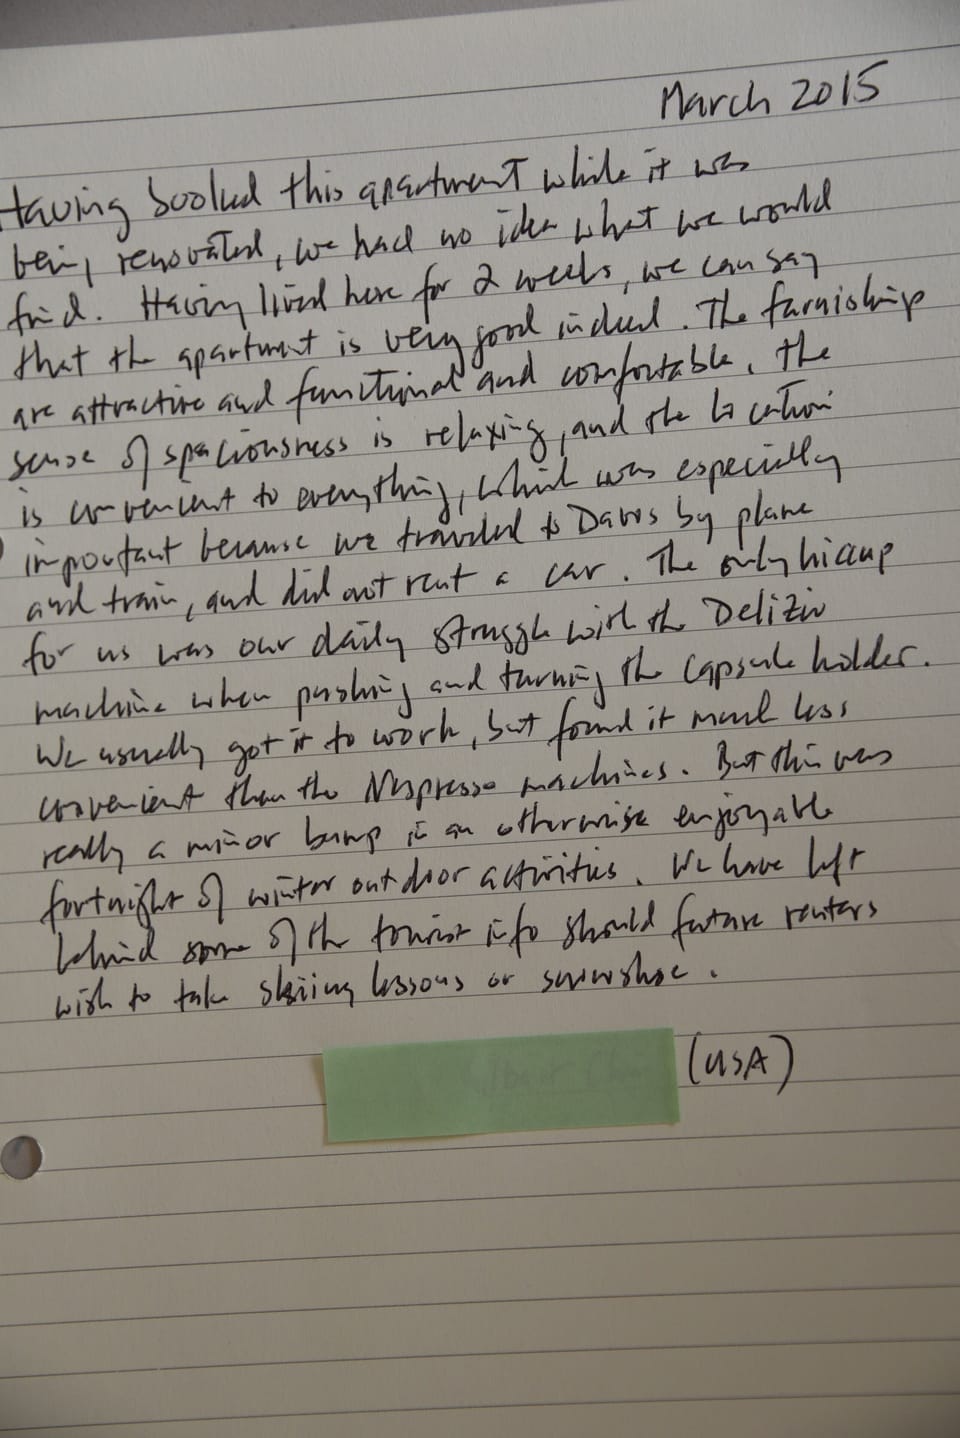 March 2015
Having booked this apartment while it was
being renovated, we had no idea what we would
find. Having lived here for 2 weeks, we can say
that the apartment is very good indeed. The furnishings
are attractive and functional and comfortable, the
sense of spaciousness is relaxing, and the location
is convenient to everything, which was especially
important because we traveled to Davos by plane
and train, and did not rent a car. The only hiccup
for us was our daily struggle with the Delizio
machine when pushing and turning the capsule holder.
We usually got it to work, but found it much less
convenient than the Nespresso machines. But this was
really a minor bump in an otherwise enjoyable
fortnight of winter outdoor activities. We have left
behind some of the tourist info should future renters
wish to take skiing lessons or snowshoe.
(USA)